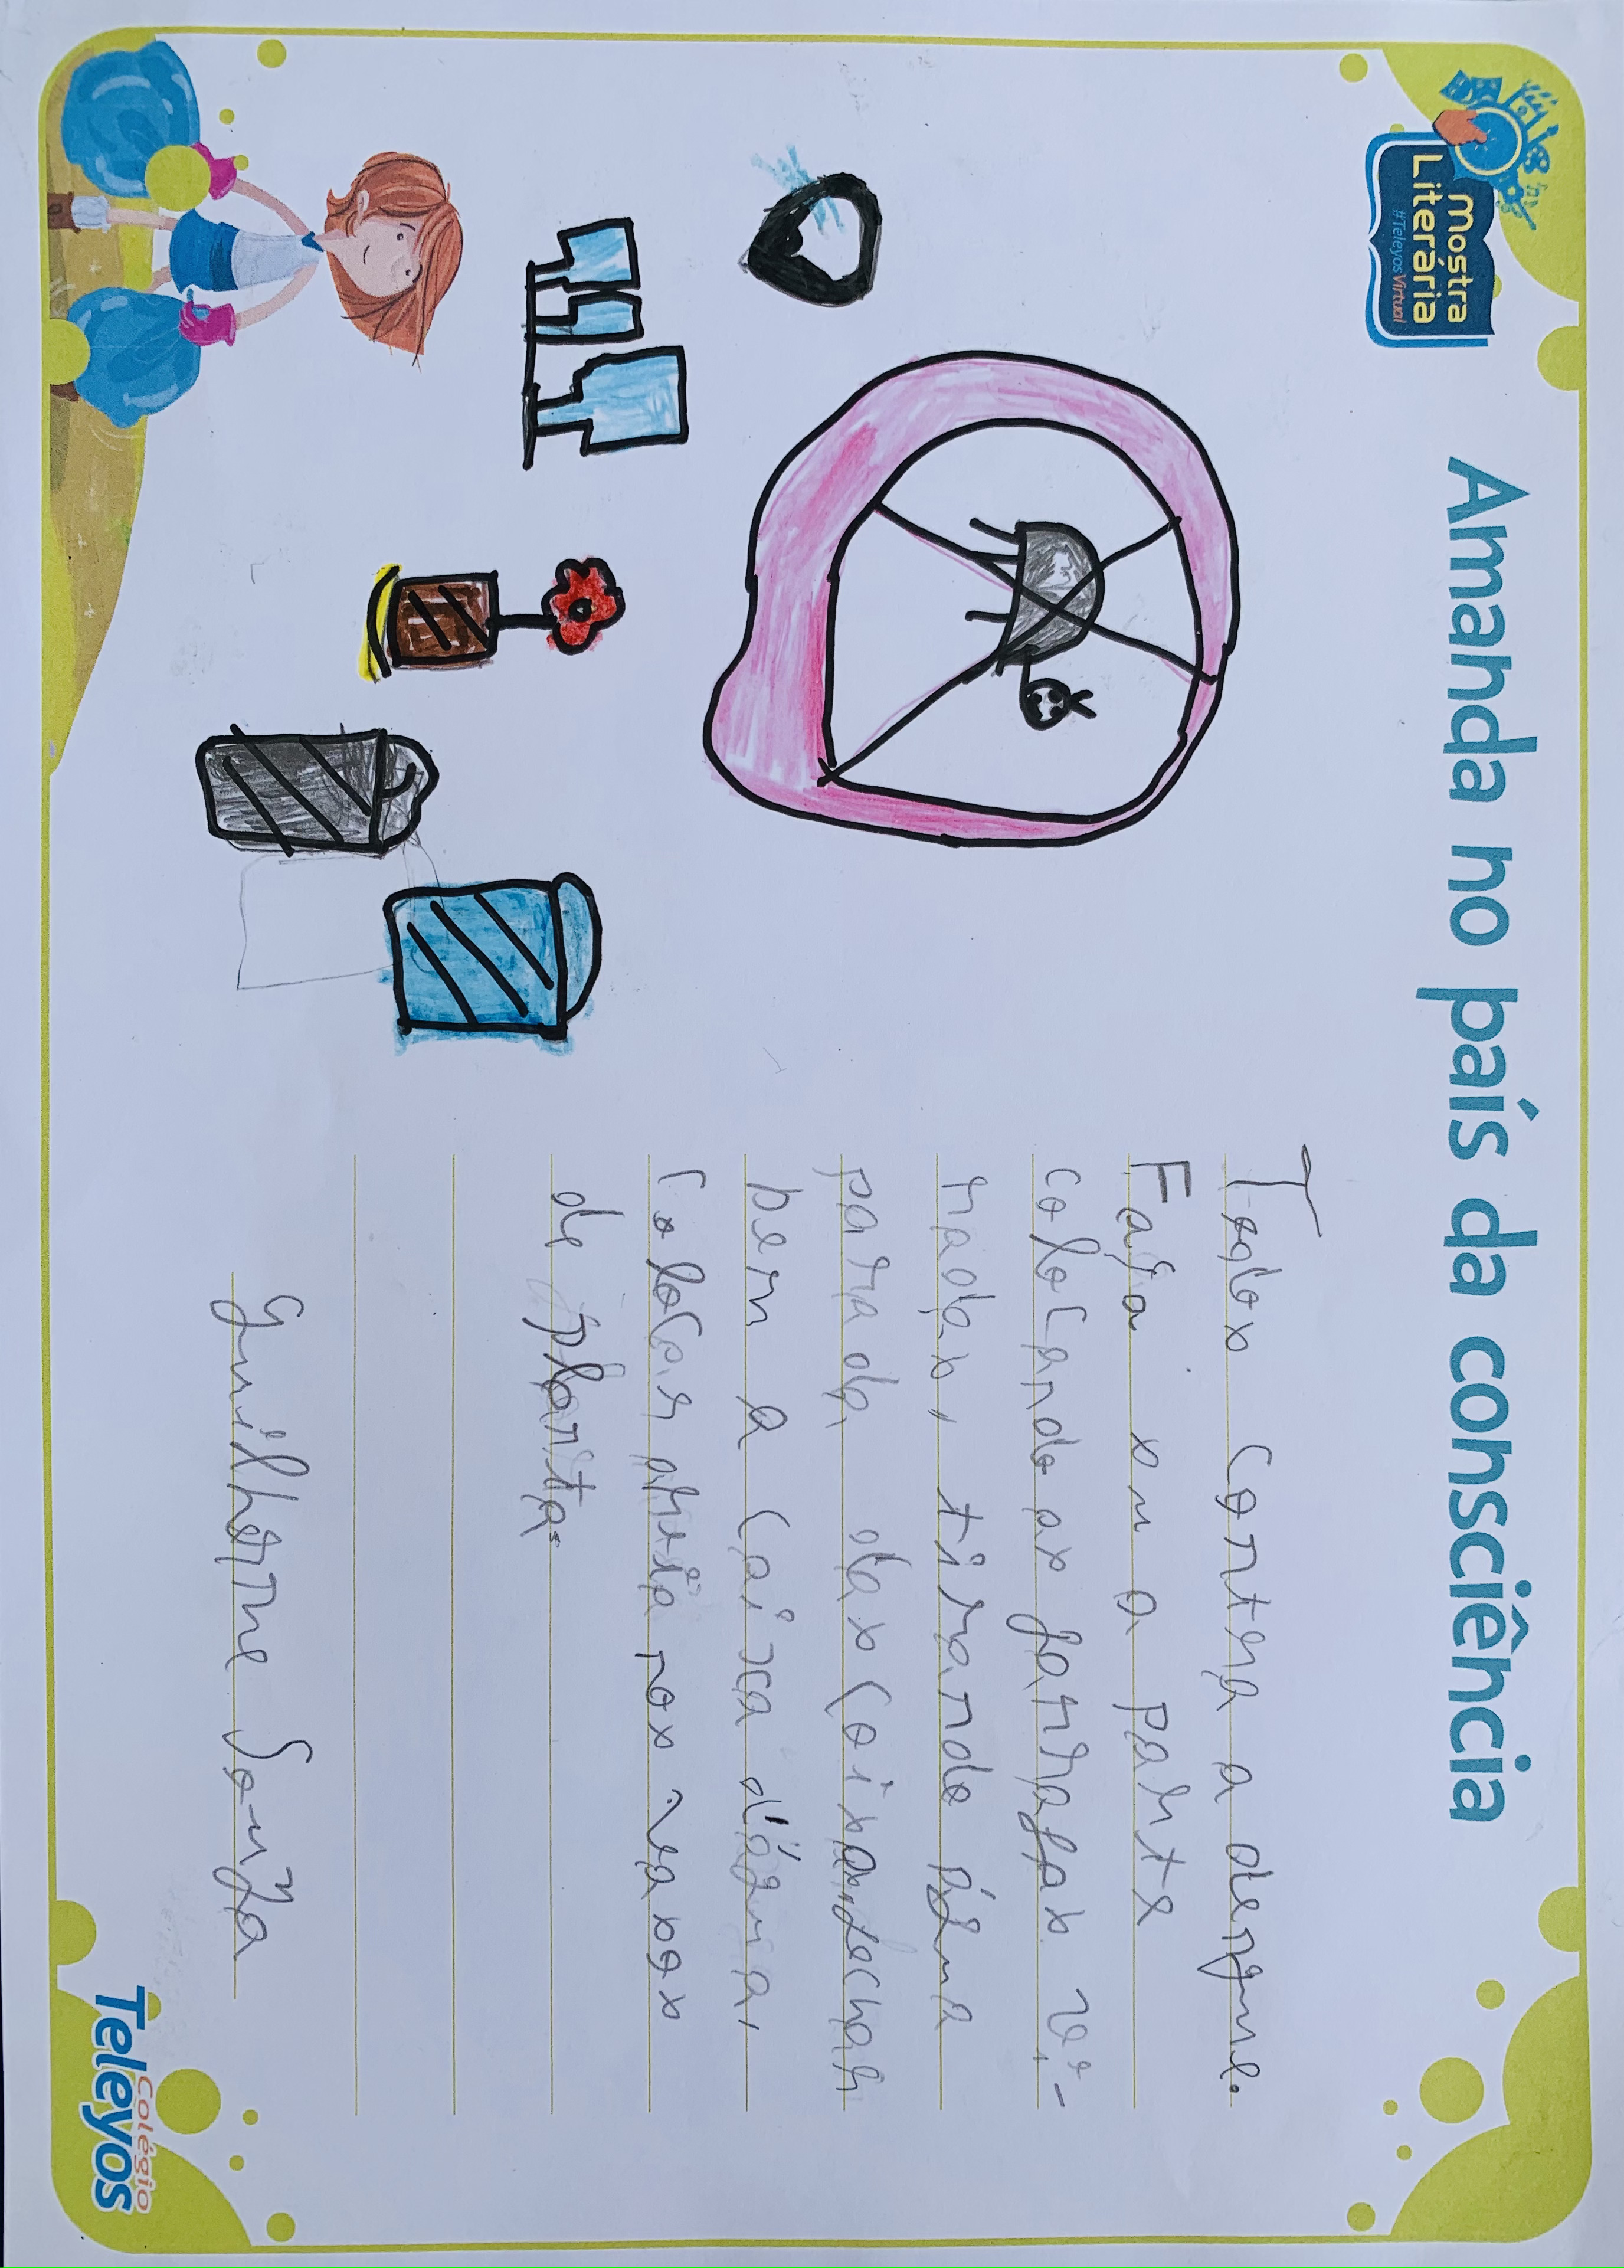 Mostra
Literária
#TeleyosVirtual
Amanda no país da consciência
Todos Contra a dengue.
Faça su a parte
colocando as garrafas vi-
radas, tirando água
parada das Coisas, fechar
bem a Caixa d'água,
Colocar areia nos vasos
de planta.
Guilherme Souza
Colégio
Teleyos